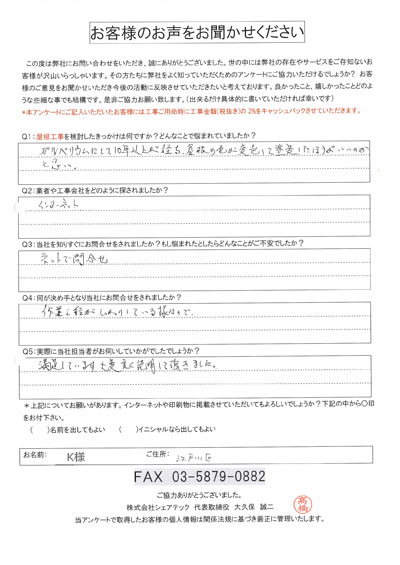 お客様のお声をお聞かせください
この度は弊社にお問い合わせをいただき、誠にありがとうございました。世の中には弊社の存在やサービスをご存知ないお
客様が沢山いらっしゃいます。その方たちに弊社をよく知っていただくためのアンケートにご協力いただけるでしょうか? お客
様のご意見をお聞かせいただき今後の活動に反映させていただきたいと考えております。良かったこと、嬉しかったことどのよ
うな些細な事でも結構です。是非ご協力お願い致します。（出来るだけ具体的に書いていただければ幸いです）
*本アンケートにご記入いただいたお客様には工事ご用命時に工事金額(税抜き)の 2%をキャッシュバックさせていただきます。
Q1:屋根工事を検討したきっかけは何ですか?どんなことで悩まれていましたか?
ガルバリウムにして10年以上が経ち、屋根の色が変色して塗装したほうがいいのか
と思い。
Q2:業者や工事会社をどのように探されましたか?
インターネット
Q3:当社を知りすぐにお問合せをされましたか?もし悩まれたとしたらどんなことがご不安でしたか?
ネットで問合せ
Q4:何が決め手となり当社にお問合せをされましたか?
作業工程がしっかりしている様なので、
Q5:実際に当社担当者がお伺いしていかがでしたでしょうか?
満足しています。丁寧に説明して頂きました。
*上記についてお願いがあります。インターネットや印刷物に掲載させていただいてもよろしいでしょうか?下記の中から〇印
をお付下さい。
(　　)名前を出してもよい　(　　)イニシャルなら出してもよい
お名前: K様 ご住所: 江戸川区
FAX 03-5879-0882
ご協力ありがとうございました。
株式会社シェアテック 代表取締役 大久保 誠二
高橋
当アンケートで取得したお客様の個人情報は関係法規に基づき厳正に管理いたします。